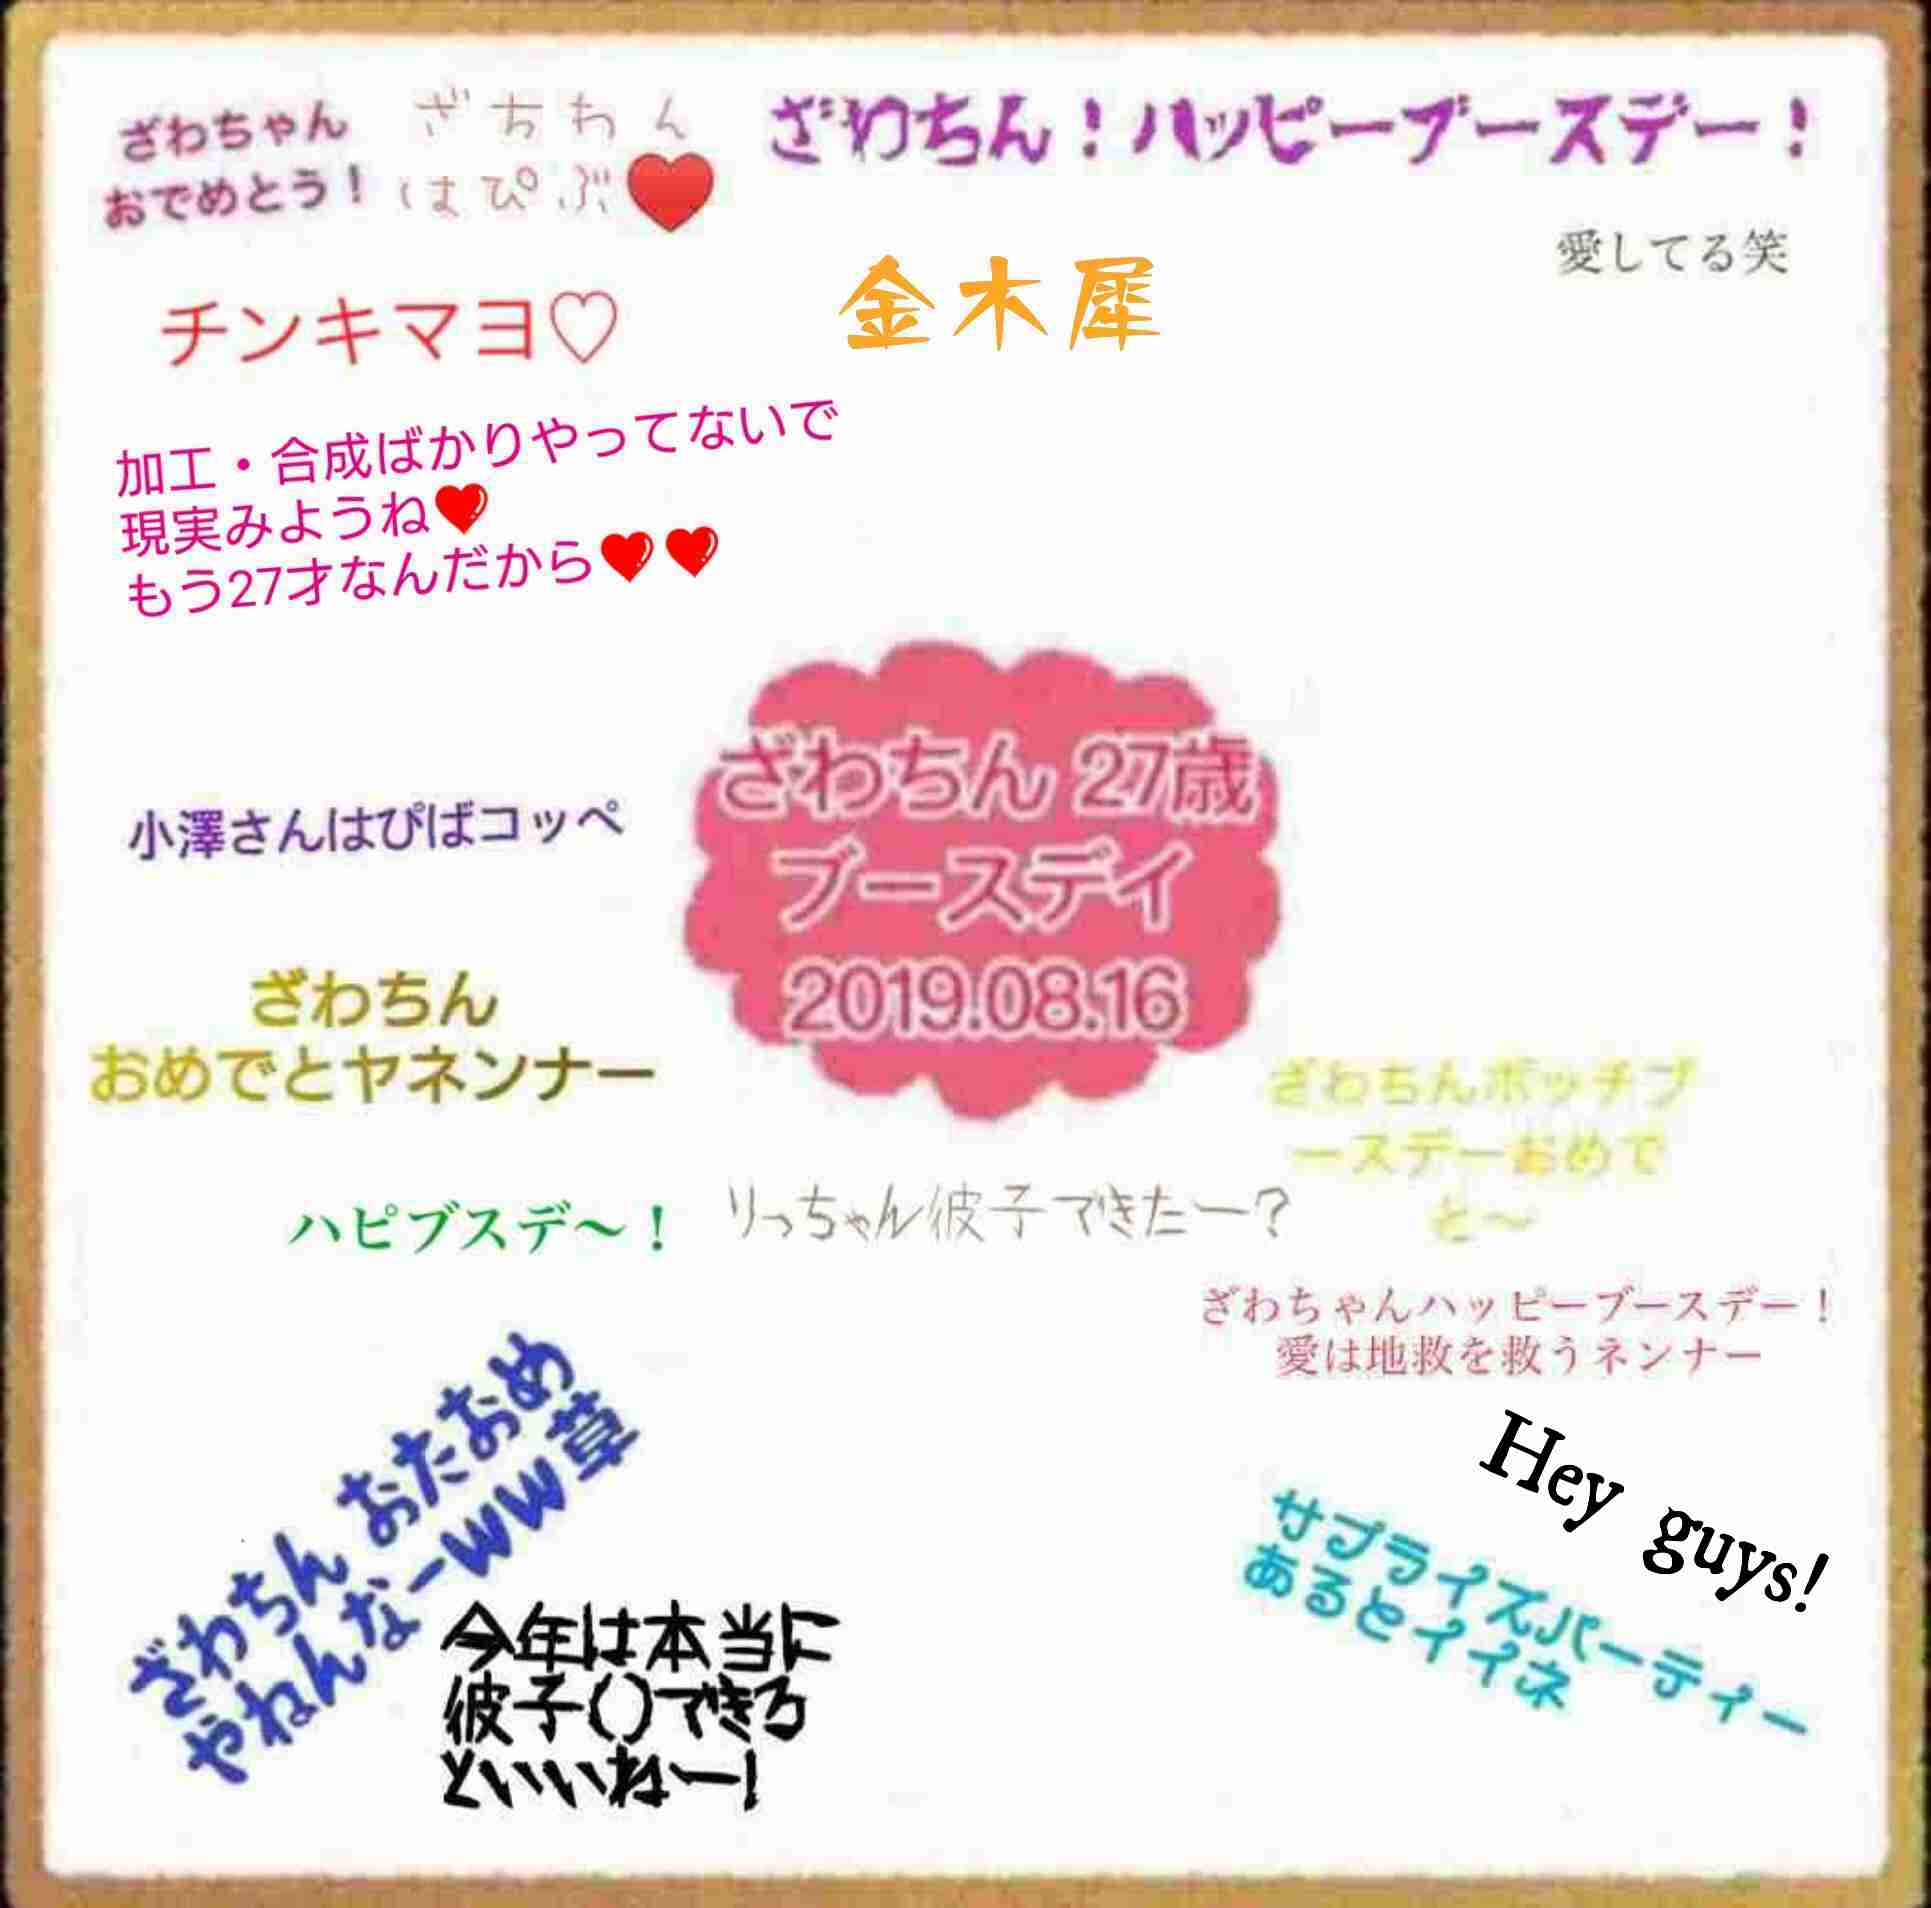 ざわちゃん
おでめとう！
ざちわん
はぴぶ♥
ざわちん！ハッピーブースデー！
愛してる笑
チンキマヨ♡
金木犀
加工・合成ばかりやってないで
現実みようね❤
もう27才なんだから❤❤
ざわちん 27歳
ブースデイ
2019.08.16
小澤さんはぴばコッペ
ざわちん
おめでとヤネンナー
ざわちんボッチブ
ースデーおめで
と〜
ハピブスデ〜！
りっちゃん彼子できたー？
ざわちゃんハッピーブースデー！
愛は地救を救うネンナー
ざわちん おたおめ
やねんなーww草
Hey guys!
サプライズパーティー
あるとイイネ
今年は本当に
彼子()できろ
といいねー!